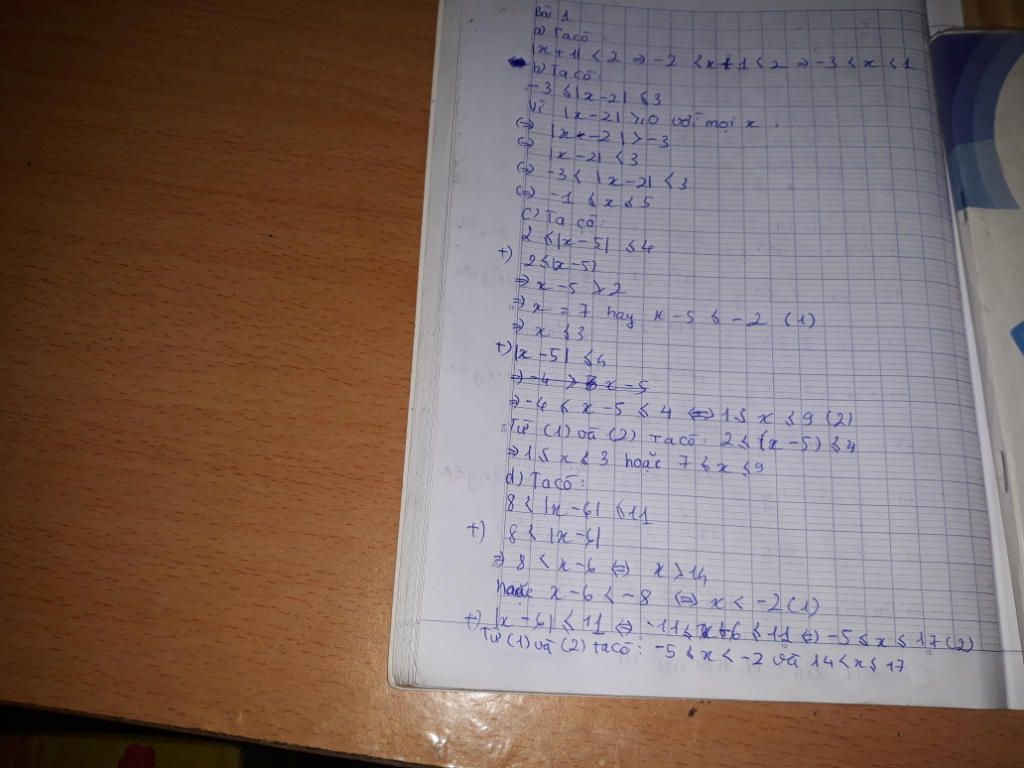 Bài 1
a) Ta có
|x + 1| < 2 ⇒ -2 < x + 1 < 2 ⇒ -3 < x < 1
b) Ta có
-3 ≤ |x - 2| ≤ 3
Vì |x - 2| ≥ 0 với mọi x
(⇒) |x - 2| > -3
(⇒) |x - 2| ≤ 3
(⇒) -3 ≤ |x - 2| ≤ 3
(⇒) -1 ≤ x ≤ 5
c) Ta có:
2 ≤ |x - 5| ≤ 4
+) 2 ≤ |x - 5|
⇒ x - 5 ≥ 2
⇒ x = 7 hay x - 5 ≤ -2 (1)
⇒ x ≤ 3
+) |x - 5| ≤ 4
⇒ -4 ≤ x - 5 ≤ 4 ⇔ 1 ≤ x ≤ 9 (2)
Từ (1) và (2) ta có: 2 ≤ (x - 5) ≤ 4
⇒ 1 ≤ x ≤ 3 hoặc 7 ≤ x ≤ 9
d) Ta có:
8 < |x - 6| ≤ 11
+) 8 < |x - 6|
⇒ 8 < x - 6 ⇔ x > 14
hoặc x - 6 < -8 ⇔ x < -2 (1)
+) |x - 6| ≤ 11 ⇔ -11 ≤ x - 6 ≤ 11 ⇔ -5 ≤ x ≤ 17 (2)
Từ (1) và (2) ta có: -5 ≤ x < -2 và 14 < x ≤ 17